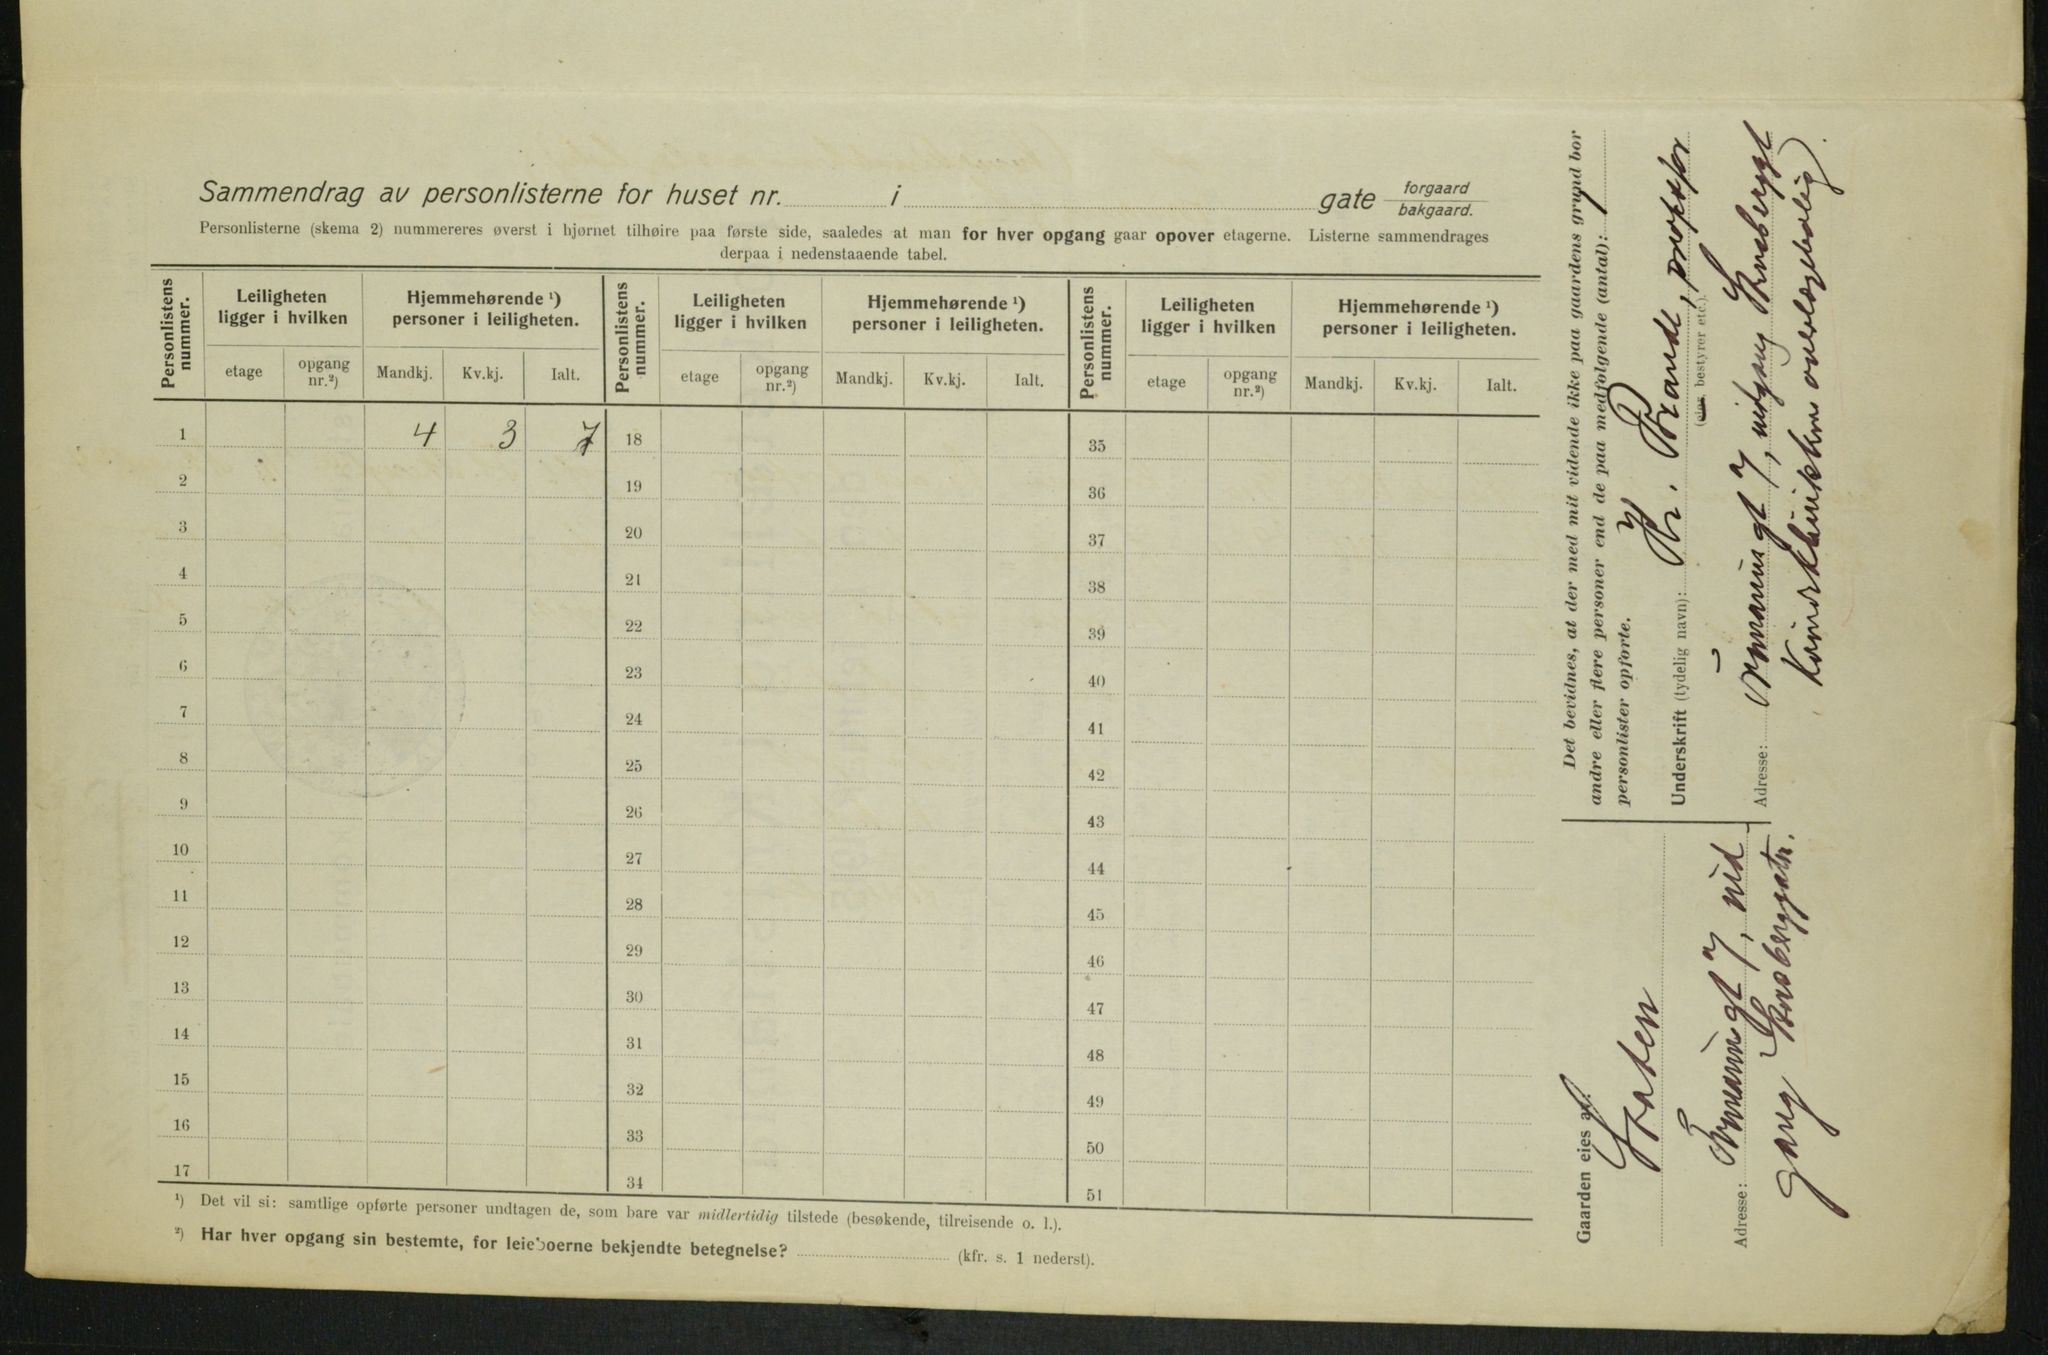 Sammendrag av personlisterne for huset nr. i gate forgaard
bakgaard.
Personlisterne (skema 2) nummereres øverst i hjørnet tilhøire paa første side, saaledes at man for hver opgang gaar opover etagerne. Listerne sammendrages
derpaa i nedenstaaende tabel.
Personlistens nummer. Leiligheten ligger i hvilken Hjemmehørende ¹) personer i leiligheten. Personlistens nummer. Leiligheten ligger i hvilken Hjemmehørende ¹) personer i leiligheten. Personlistens nummer. Leiligheten ligger i hvilken Hjemmehørende ¹) personer i leiligheten.
etage opgang nr.²) Mandkj. Kv.kj. Ialt. etage opgang nr.²) Mandkj. Kv.kj. Ialt. etage opgang nr.²) Mandkj. Kv.kj. Ialt.
1 4 3 7 18 35
2 19 36
3 20 37
4 21 38
5 22 39
6 23 40
7 24 41
8 25 42
9 26 43
10 27 44
11 28 45
12 29 46
13 30 47
14 31 48
15 32 49
16 33 50
17 34 51
¹) Det vil si: samtlige opførte personer undtagen de, som bare var midlertidig tilstede (besøkende, tilreisende o. l.).
²) Har hver opgang sin bestemte, for leieboerne bekjendte betegnelse? (kfr. s. 1 nederst).
Gaarden eies av:
Staten
Adresse:
7, ind
gang
Det bevidnes, at der med mit vidende ikke paa gaardens grund bor
andre eller flere personer end de paa medfølgende (antal): 1
personlister opførte.
Underskrift (tydelig navn): Kr. Brandt, professor
(eier, bestyrer etc.).
Adresse: 7, indgang
Kvindeklinikkens overlægebolig).